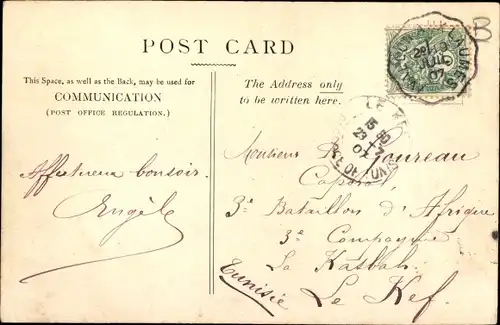 B
POST CARD
This Space, as well as the Back, may be used for
COMMUNICATION
(POST OFFICE REGULATION.)
The Address only
to be written here.
LAUMES
JUIL
07
LE KEF
15 30
23 -7
07
Affectueux bonsoir.
Engèle
Monsieur R. Goureau
Caporal
3e Bataillon d'Afrique
3e Compagnie
La Kasbah
Le Kef
Tunisie